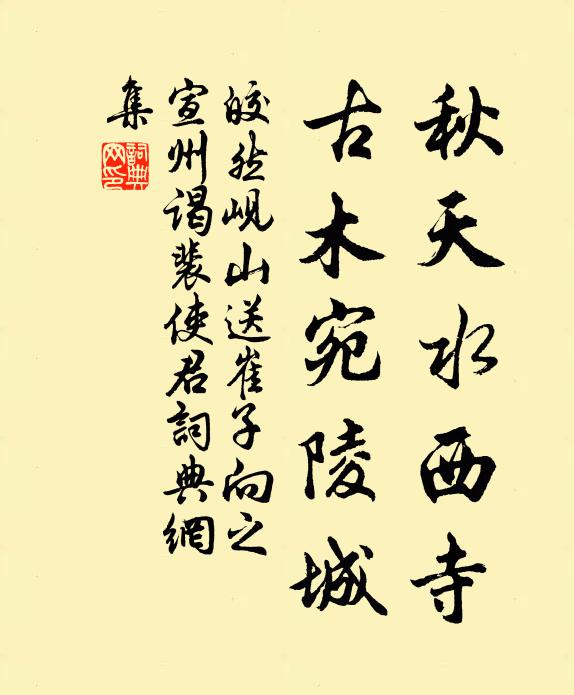 秋天水西寺
古木宛陵城
皎然峴山送崔子向之
宣州謁裴使君詞典網
集
詞典
网印